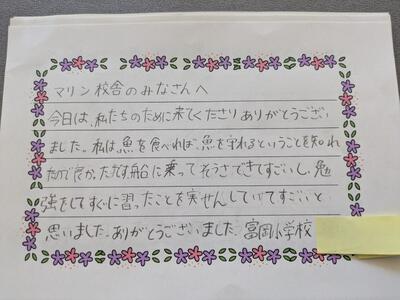 マリン校舎のみなさんへ
今日は、私たちのために来てくださりありがとうござい
ました。私は、魚を食べれば、魚を守れるということを知れ
たので良かったです。船に乗ってそうさできてすごいし、勉
強をしてすぐに習ったことを実せんしていてすごいと
思いました。ありがとうございました。富岡小学校